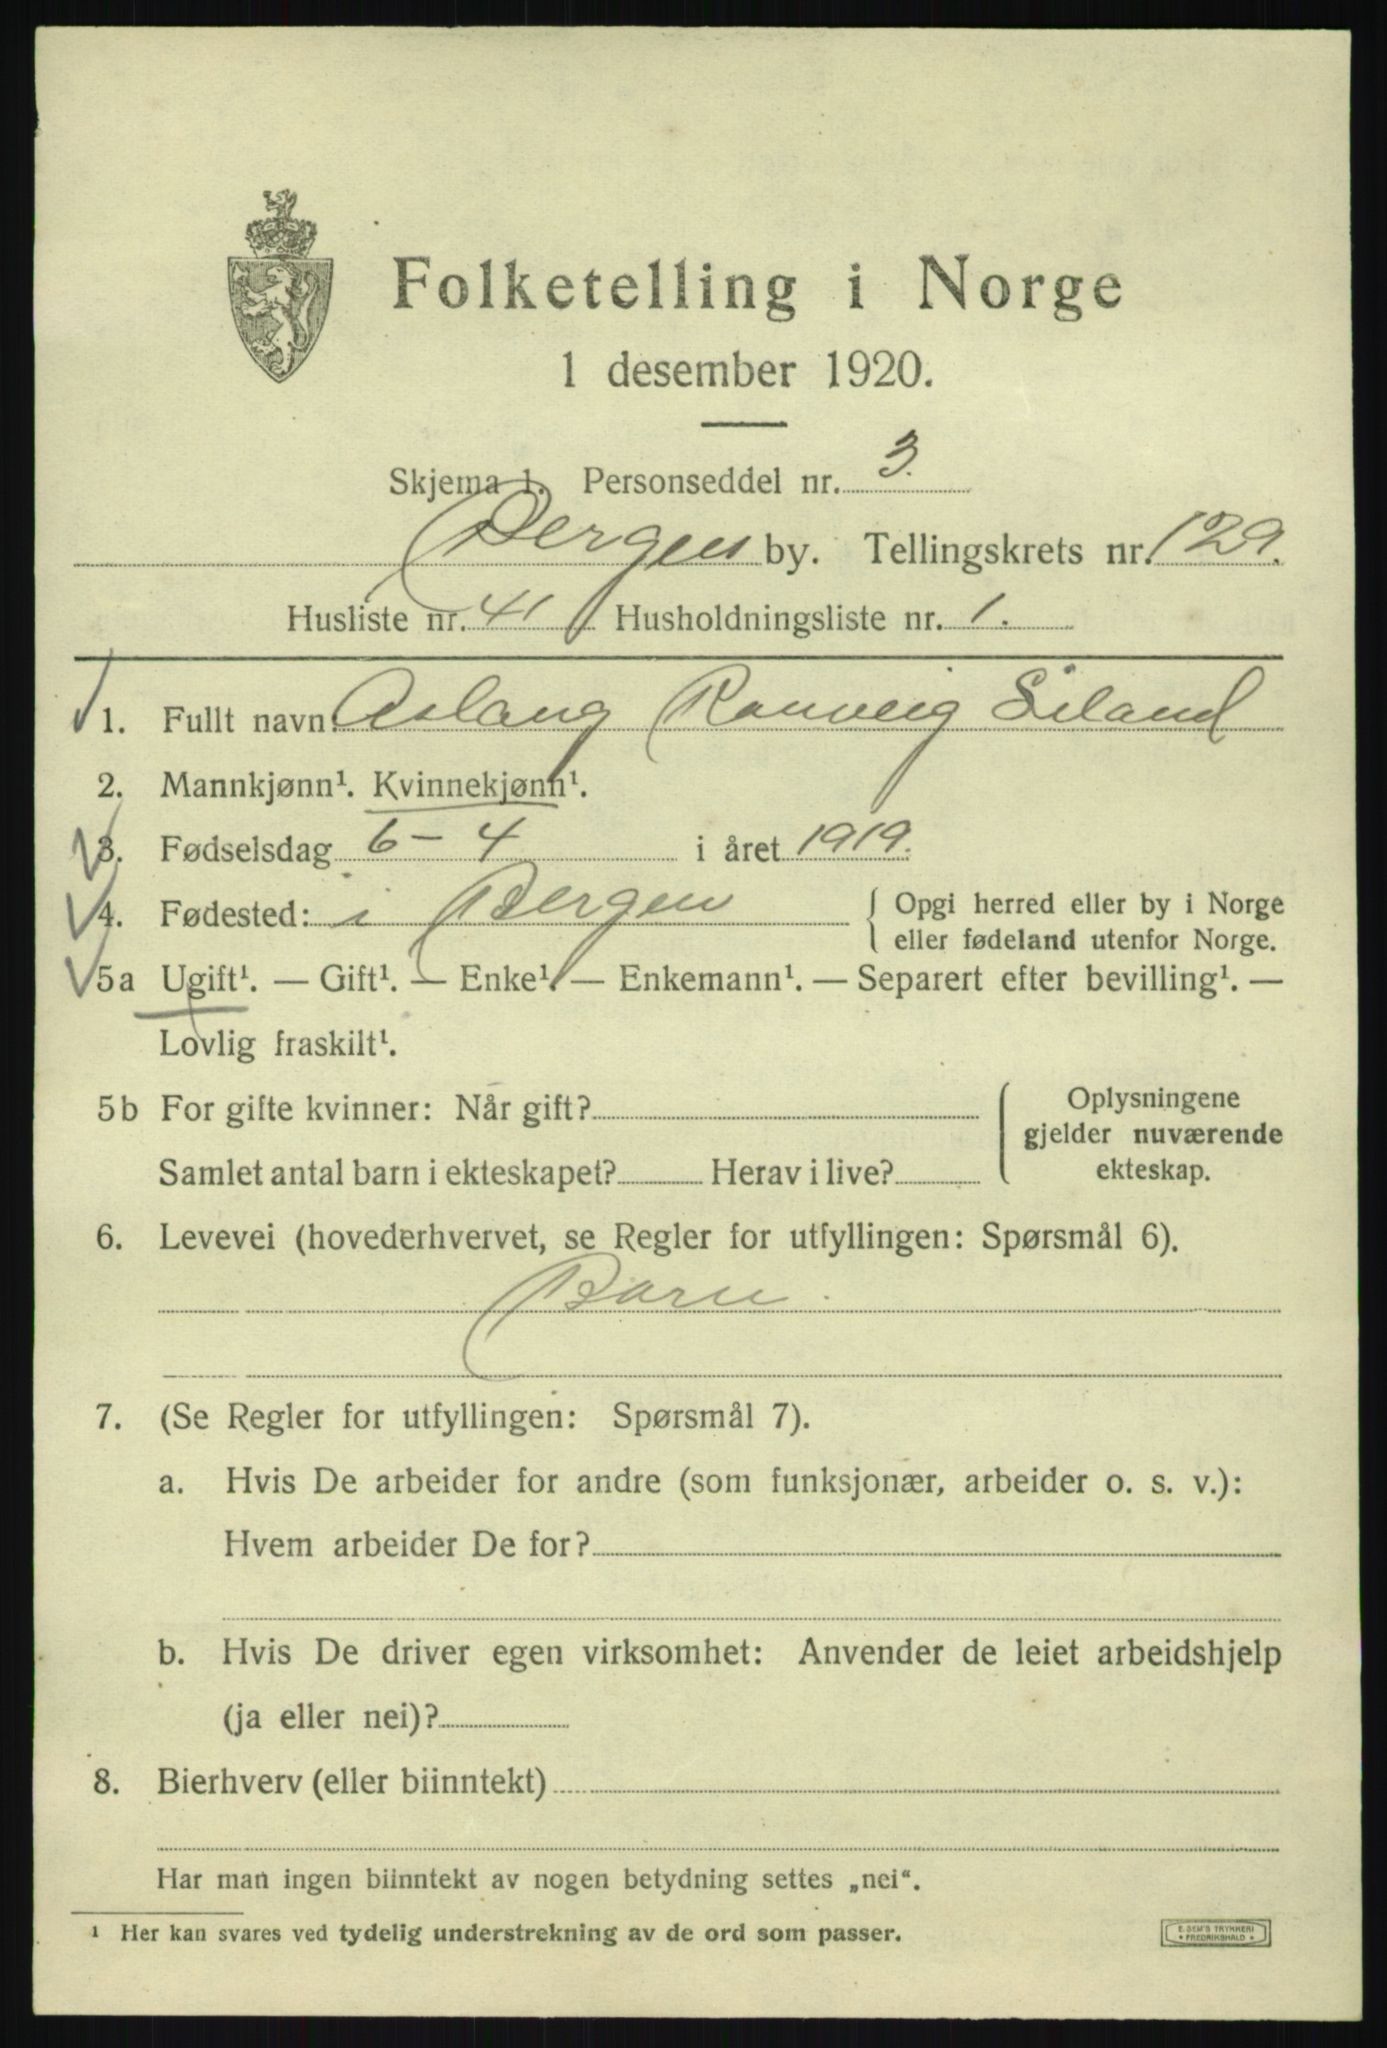 Folketelling i Norge
1 desember 1920.
Skjema 1. Personseddel nr. 3.
Bergen by. Tellingskrets nr. 129.
Husliste nr. 41 Husholdningsliste nr. 1.
1. Fullt navn: Aslaug Ranveig Eiland
2. Mannkjønn¹. Kvinnekjønn¹.
3. Fødselsdag 6-4 i året 1919.
4. Fødested: i Bergen { Opgi herred eller by i Norge
eller fødeland utenfor Norge.
5a Ugift¹. — Gift¹. — Enke¹. — Enkemann¹. — Separert efter bevilling¹. —
Lovlig fraskilt¹.
5b For gifte kvinner: Når gift?
Samlet antal barn i ekteskapet? Herav i live?
{ Oplysningene
gjelder nuværende
ekteskap.
6. Levevei (hovederhvervet, se Regler for utfyllingen: Spørsmål 6).
Barn.
7. (Se Regler for utfyllingen: Spørsmål 7).
a. Hvis De arbeider for andre (som funksjonær, arbeider o. s. v.):
Hvem arbeider De for?
b. Hvis De driver egen virksomhet: Anvender de leiet arbeidshjelp
(ja eller nei)?
8. Bierhverv (eller biinntekt)
Har man ingen biinntekt av nogen betydning settes „nei“.
¹ Her kan svares ved tydelig understrekning av de ord som passer.
E. SEM'S TRYKKERI
* FREDRIKSHALD *